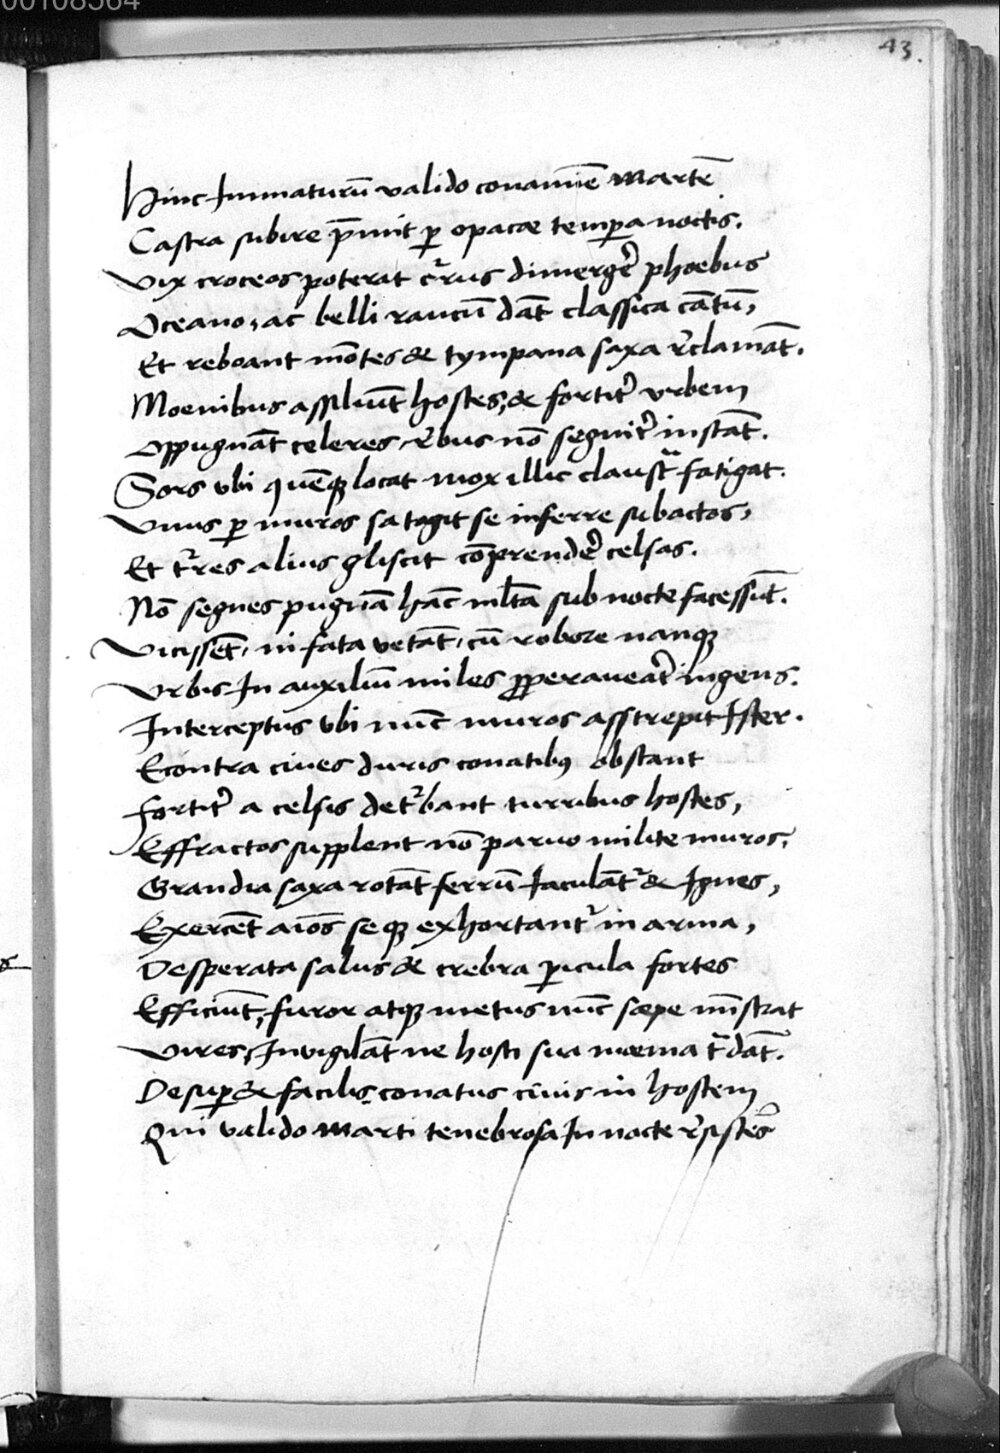 00108564
43.
Hinc Immaturū valido conamīe martē
Castra subire p̄mit ꝑ opacæ tempa noctis.
Vix croceos poterat cʳrus dimergeʳ phoebus
Oceano, ac belli raucū dāt classica cātū,
Et reboant mōtes & tympana saxa rʳclamāt.
Moenibus assiliūt hostes, & fortitʳ vrbem
Oppugnāt celeres, rʳbus nō segnitʳ instāt.
Sors vbi quēqꝫ locat mox illic claustᵃ fatigat.
Vnus ꝑ muros satagit se inferre subactos,
Et tʳres alius gliscit cōprendeʳ celsas.
Nō segnes pugnā hāc ml̄ta sub nocte facessūt.
Vicissēt, ni fata vetāt, cū robore nanqꝫ
Vrbis In auxiliū miles ꝓperaueatʳ ingens.
Interceptus vbi nūc muros asstrepit Ister.
Econtra ciues duris conatibꝰ obstant
fortitʳ a celsis detʳbant turribus hostes,
Effractos supplent nō paruo milite muros,
Grandia saxa rotāt ferrū Iaculātʳ & Ignes,
Exercēt aīos seqꝫ exhortantʳ in arma,
Desperata salus & crebra ꝑicula fortes
Efficiūt, furor atqꝫ metus nūc sæpe mīstrat
Vires, Inuigilāt ne hosti sua mœnia tᵃdāt.
Desuꝑ & facilis conatus ciuis in hostem
Qui valido marti tenebrosa In nocte rʳsisteʳs